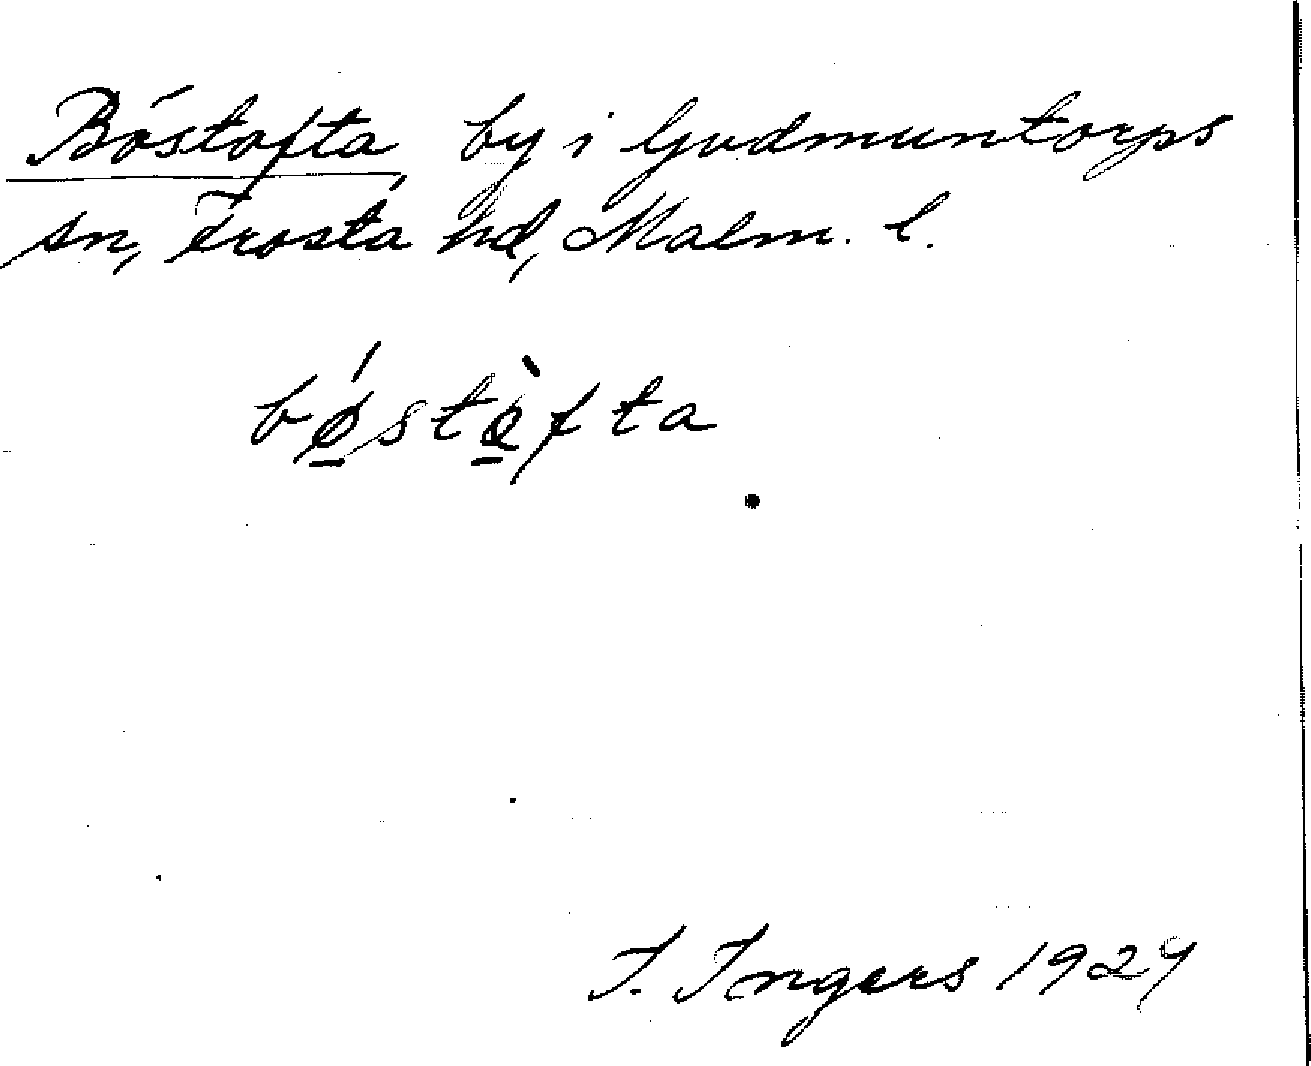 Böstofta, by i Gudmuntorps
sn, Frosta hd, Malm. l.
bǿstòfta
I. Ingers 1924